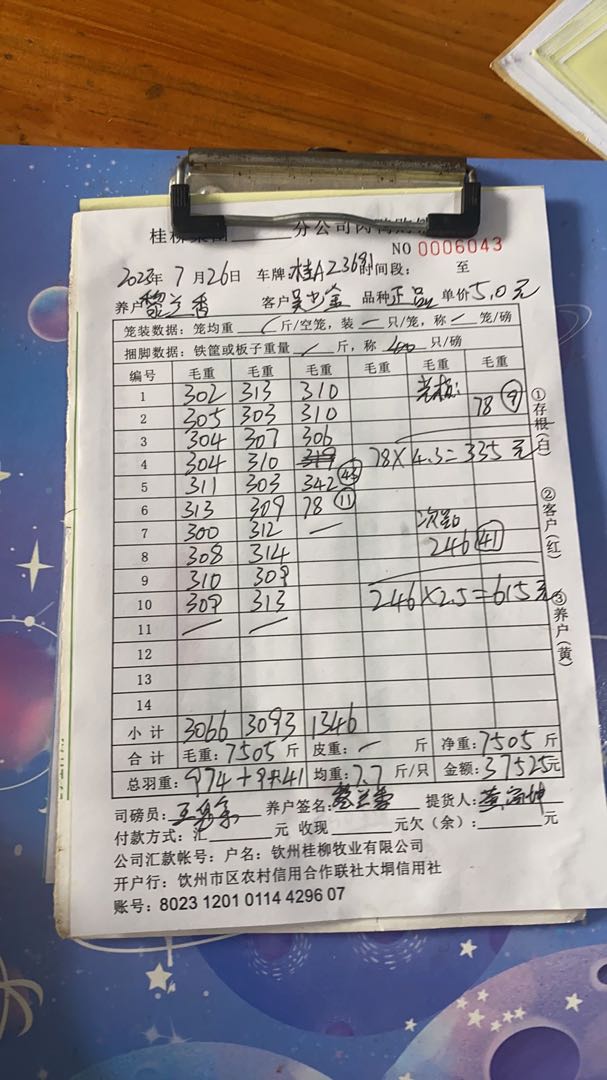 桂柳集团 分公司肉鸭购销
NO 0006043
2023年 7月26日 车牌:桂A23691 时间段: 至
养户 黎兰香 客户 品种 正品 单价 5.0元
笼装数据:笼均重 / 斤/空笼,装 一 只/笼,称 / 笼/磅
捆脚数据:铁筐或板子重量 / 斤,称 400 只/磅
编号 毛重 毛重 毛重 毛重 毛重 毛重
1 302 313 310 老板:
2 305 303 310 78 ⑨
3 304 307 306
4 304 310 319 78×4.3=335元
5 311 303 342 ㊸
6 313 309 78 ⑪
7 300 312 一 次品
8 308 314 246 ㊶
9 310 309
10 309 313 246×2.5=615元
11 / /
12
13
14
小计 3066 3093 1346
合计 毛重:7505 斤 皮重:一 斤 净重:7505 斤
总羽重:974+9+41 均重:7.7 斤/只 金额:37525元
司磅员: 养户签名:黎兰香 提货人:
付款方式:汇 元 收现 元欠(余): 元
公司汇款帐号:户名:钦州桂柳牧业有限公司
开户行:钦州市区农村信用合作联社大垌信用社
账号:8023 1201 0114 4296 07
①存根(白)
②客户(红)
③养户(黄)